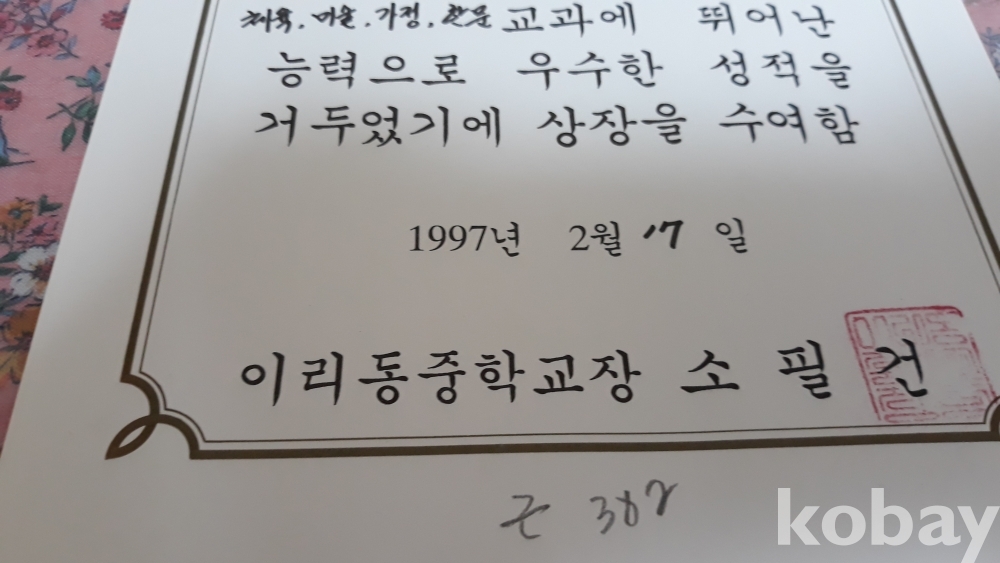 체육, 미술, 가정, 한문 교과에 뛰어난
능력으로 우수한 성적을
거두었기에 상장을 수여함
1997년 2월 17일
이리동중학교장 소필건
kobay